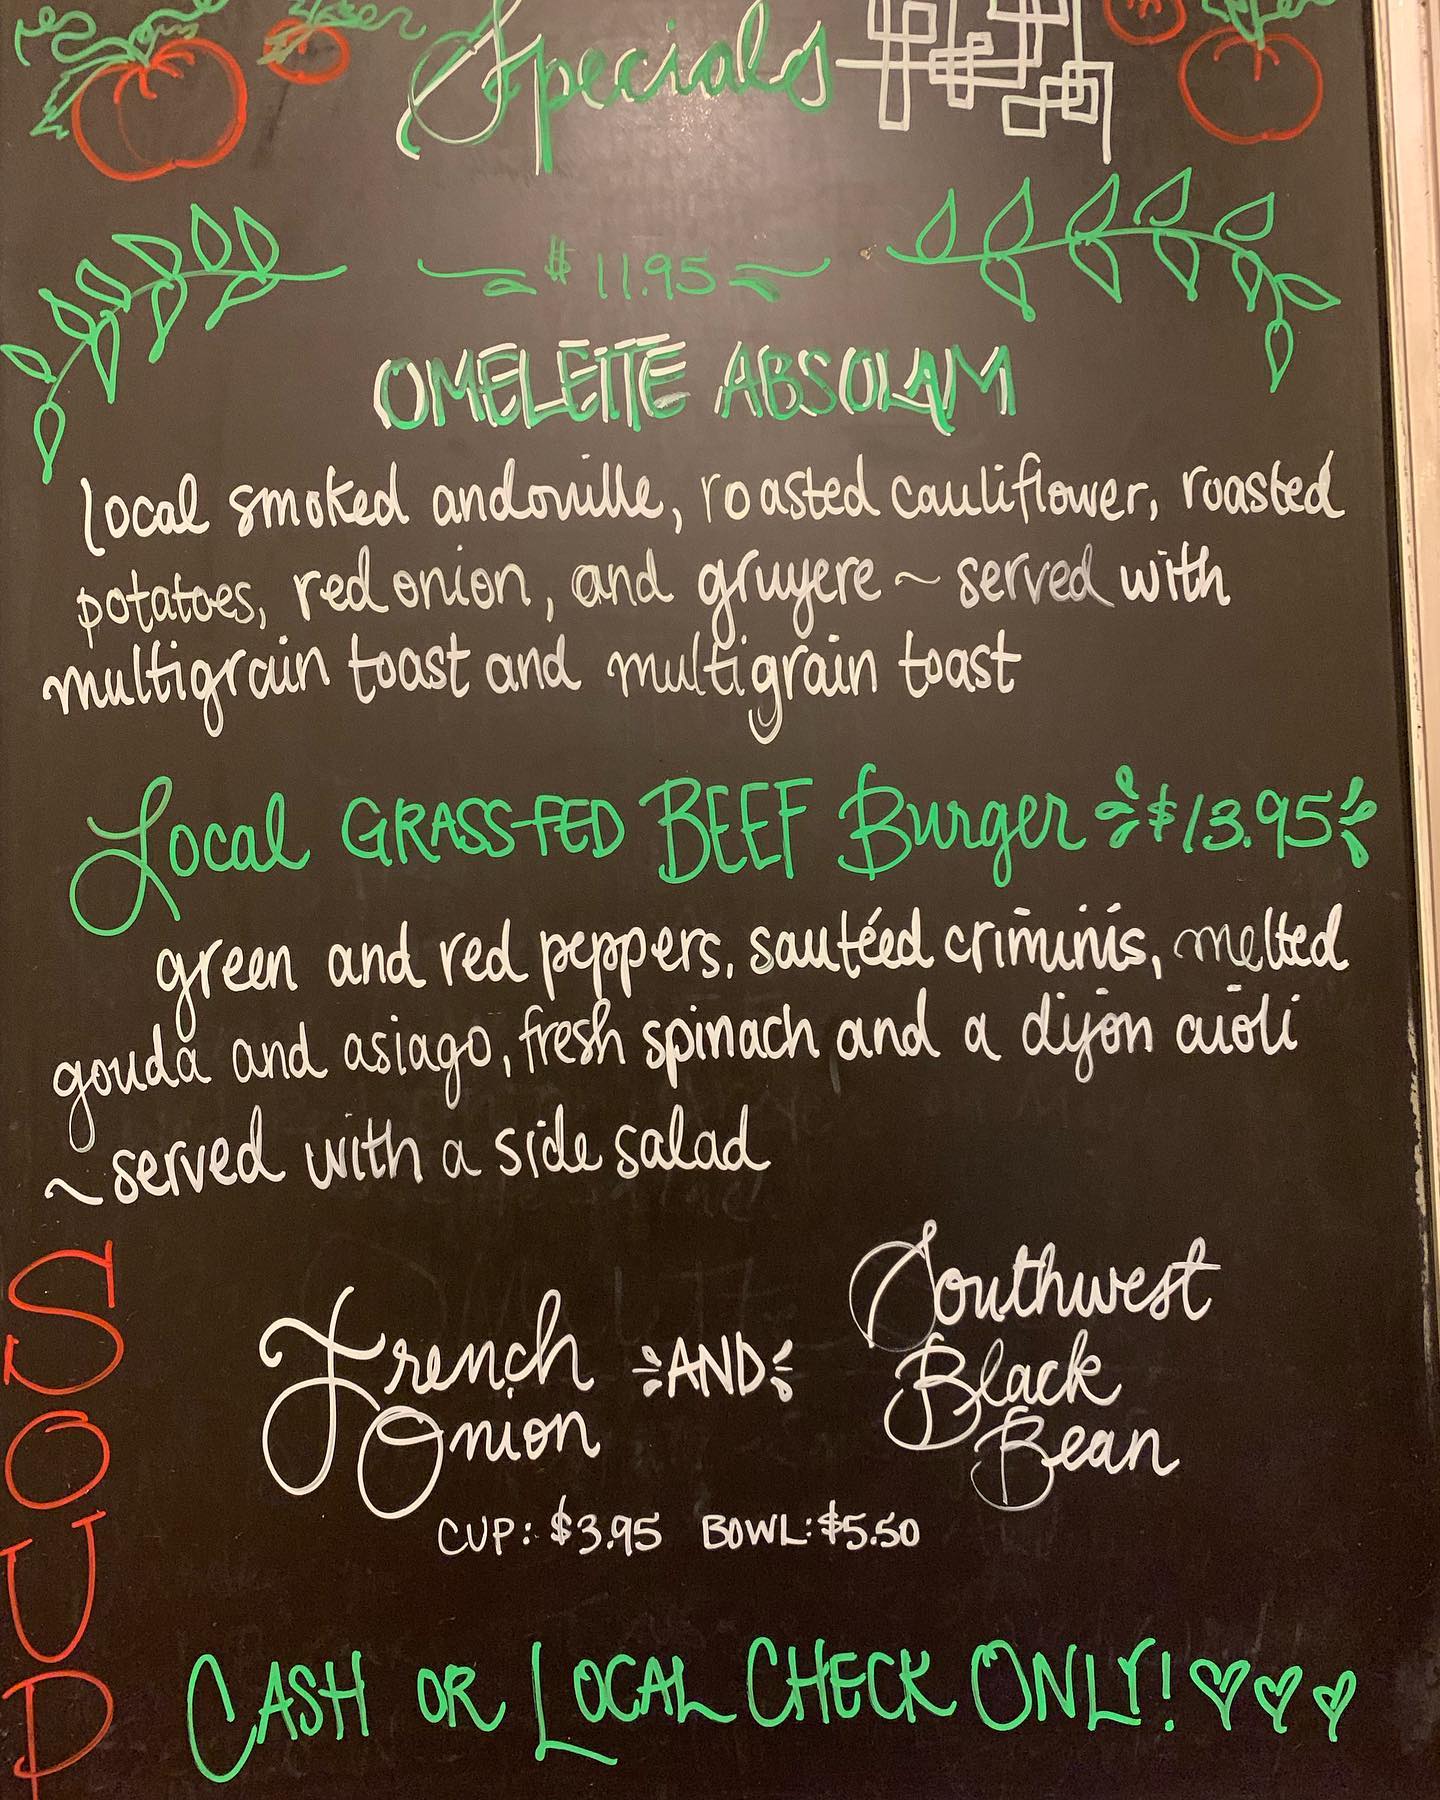 Specials
$11.95
OMELETTE ABSOLAM
local smoked andouille, roasted cauliflower, roasted
potatoes, red onion, and gruyere ~ served with
multigrain toast and multigrain toast
Local GRASS-FED BEEF Burger $13.95
green and red peppers, sautéed criminis, melted
gouda and asiago, fresh spinach and a dijon aioli
~ served with a side salad
SOUP
French Onion AND Southwest Black Bean
CUP: $3.95 BOWL: $5.50
CASH OR LOCAL CHECK ONLY! ♡♡♡